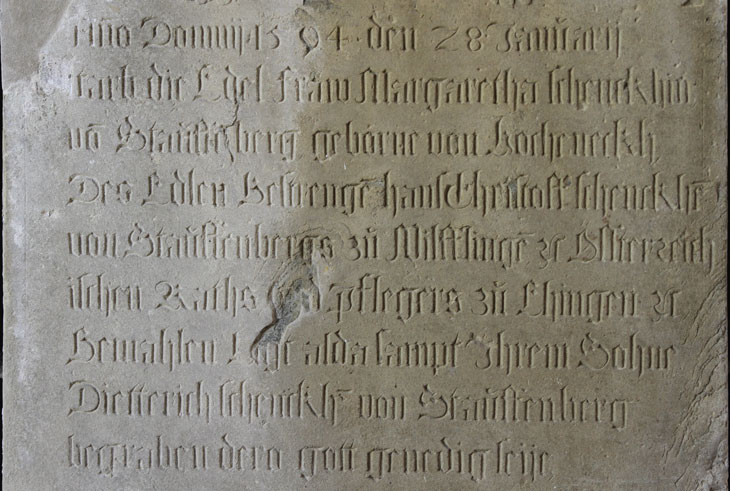 Domnij · 1594 · den 28 Januarij
starb die Edel Fraw Margaretha schenckhin
vō Stauffēberg geborne von Hocheneckh
Des Edlen Gestrengē hans Christoff schenckhē
von Stauffenbergs zů Wilfflingē ꝛc Osterreich
ischen Raths pflegers zů Ehingen ꝛc
Gemahlen Ligt alda sampt Ihrem Sohne
Dietterich schenckhē von Stauffenberg
begraben dero gott genedig seije